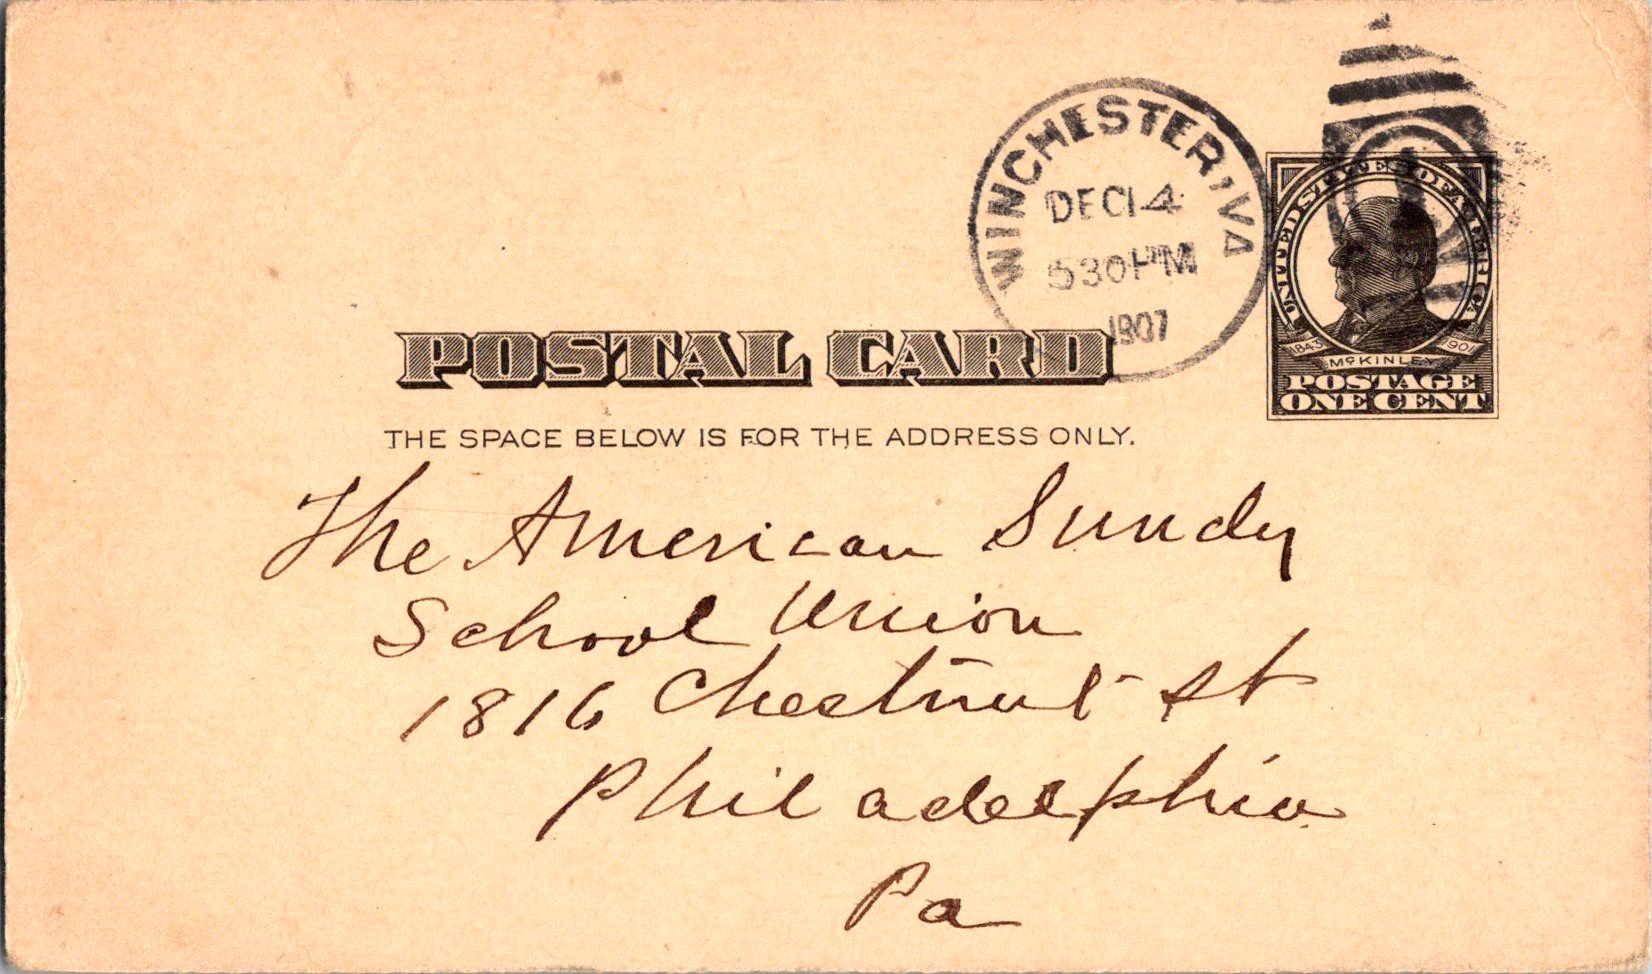 WINCHESTER, VA
DEC 14
530 PM
1907
UNITED STATES OF AMERICA
1843 1901
McKINLEY
POSTAGE
ONE CENT
POSTAL CARD
THE SPACE BELOW IS FOR THE ADDRESS ONLY.
The American Sundy
School Union
1816 Chestnut St
Philadelphia
Pa